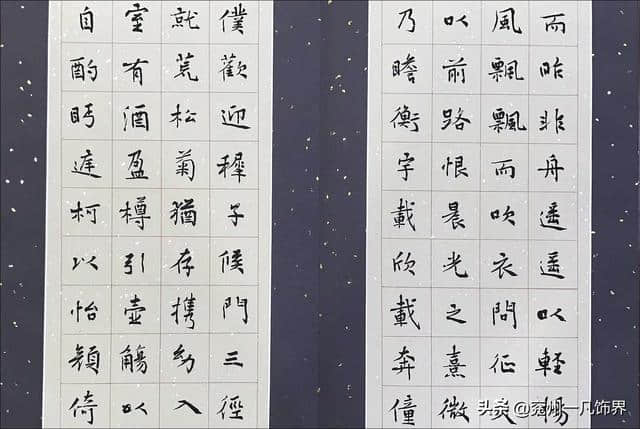 而昨非舟遥遥以輕揚
風飄飄而吹衣問征夫
以前路恨晨光之熹微
乃瞻衡宇載欣載奔僮
僕歡迎穉子候門三徑
就荒松菊猶存携幼入
室有酒盈樽引壺觴以
自酌眄庭柯以怡顏倚
头条 @兖州一几饰界